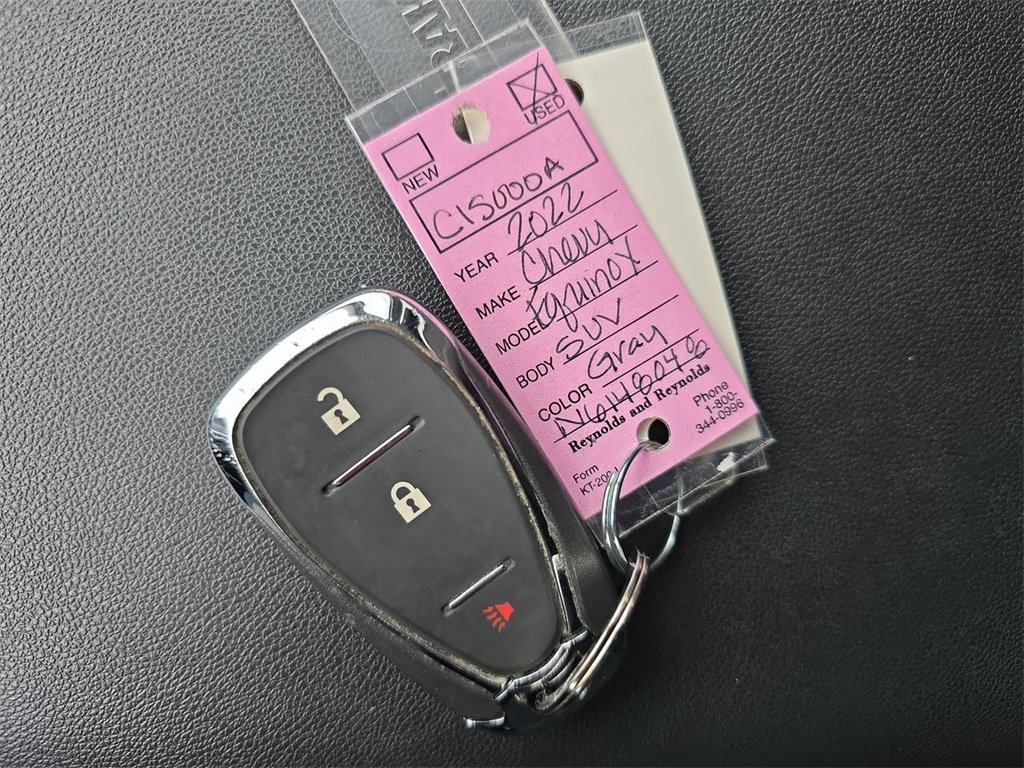 USED
NEW
C15000A
YEAR 2022
MAKE Chevy
MODEL Equinox
BODY SUV
COLOR Gray
Reynolds and Reynolds
Phone
1-800-
344-0996
Form